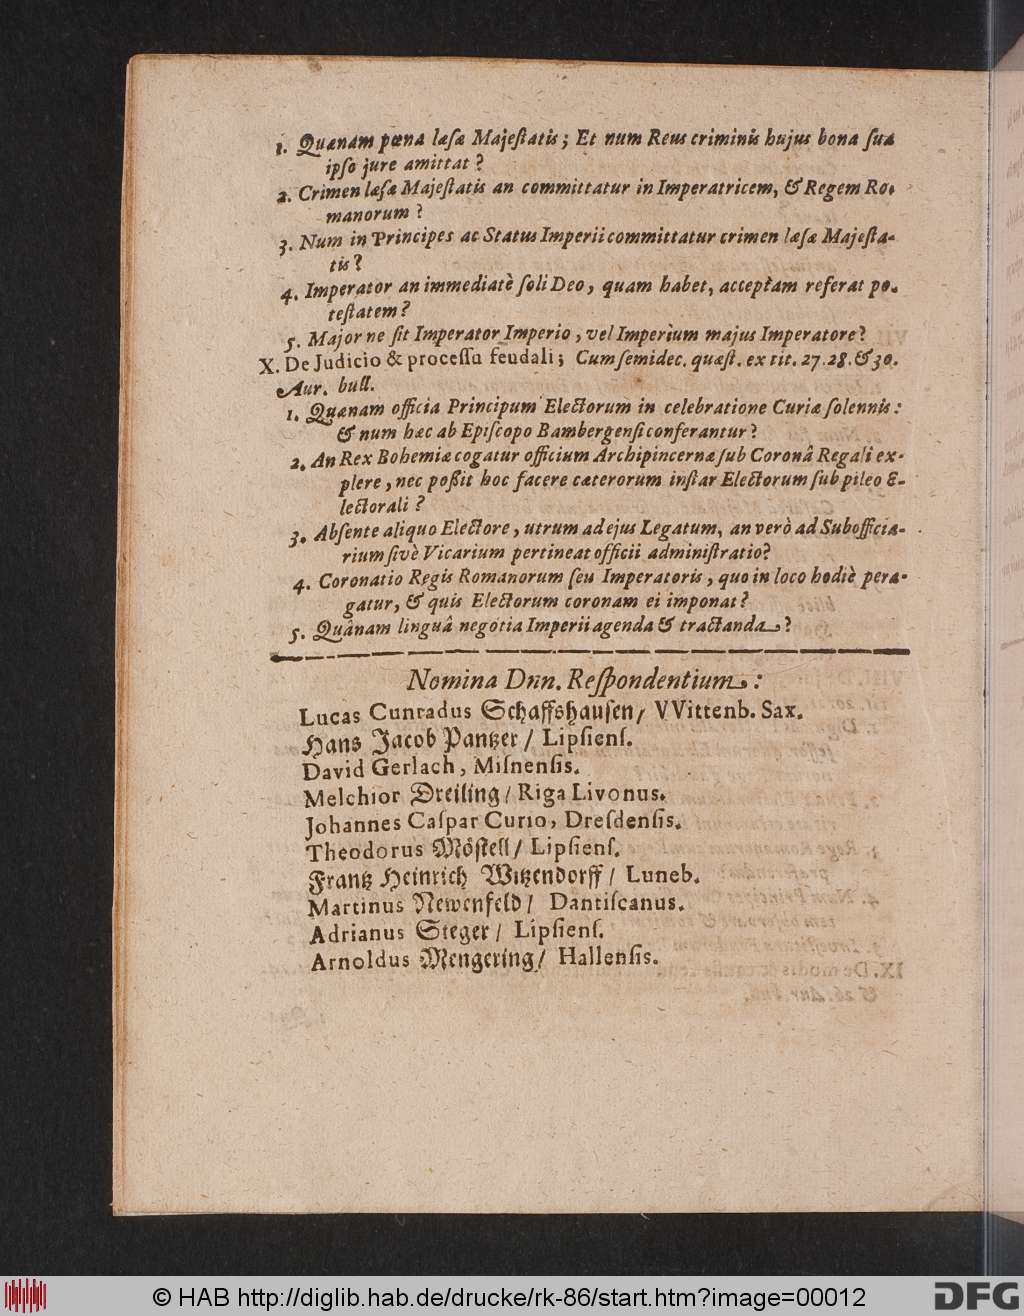 1. Quænam pœna læſæ Majeſtatis; Et num Reus criminis hujus bona ſua
ipſo jure amittat?
2. Crimen læſæ Majeſtatis an committatur in Imperatricem, & Regem Ro-
manorum?
3. Num in Principes ac Status Imperii committatur crimen læſæ Majeſta-
tis?
4. Imperator an immediatè ſoli Deo, quam habet, acceptam referat po-
teſtatem?
5. Major ne ſit Imperator Imperio, vel Imperium majus Imperatore?
X. De Judicio & proceſſu feudali; Cum ſemidec. quæſt. ex tit. 27. 28. & 30.
Aur. bull.
1. Quænam officia Principum Electorum in celebratione Curiæ ſolennis:
& num hæc ab Epiſcopo Bambergenſi conferantur?
2. An Rex Bohemiæ cogatur officium Archipincernæ ſub Coronâ Regali ex-
plere, nec poßit hoc facere cæterorum inſtar Electorum ſub pileo E-
lectorali?
3. Abſente aliquo Electore, utrum ad ejus Legatum, an verò ad Subofficia-
rium ſivè Vicarium pertineat officii adminiſtratio?
4. Coronatio Regis Romanorum ſeu Imperatoris, quo in loco hodiè pera-
gatur, & quis Electorum coronam ei imponat?
5. Quânam linguâ negotia Imperii agenda & tractanda?
Nomina Dnn. Reſpondentium:
Lucas Cunradus Schaffshauſen/ VVittenb. Sax.
Hans Jacob Pantzer/ Lipſienſ.
David Gerlach, Miſnenſis.
Melchior Dreiling/ Riga Livonus.
Johannes Caſpar Curio, Dreſdenſis.
Theodorus Möſtell/ Lipſienſ.
Frantz Heinrich Witzendorff/ Luneb.
Martinus Newenfeld/ Dantiſcanus.
Adrianus Steger/ Lipſienſ.
Arnoldus Mengering/ Hallenſis.
© HAB http://diglib.hab.de/drucke/rk-86/start.htm?image=00012
DFG